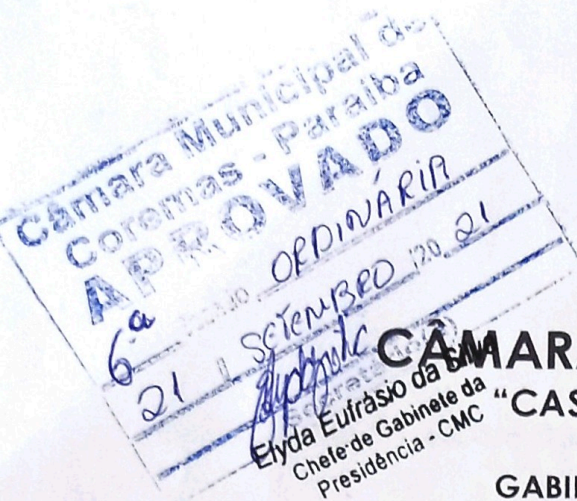 Câmara Municipal de
Coremas - Paraíba
APROVADO
6.a ORDINÁRIA
21 / SETEMBRO /20 21
Elyda Eufrásio da
Chefe de Gabinete da
Presidência - CMC
CÂMARA
“CAS
GABI